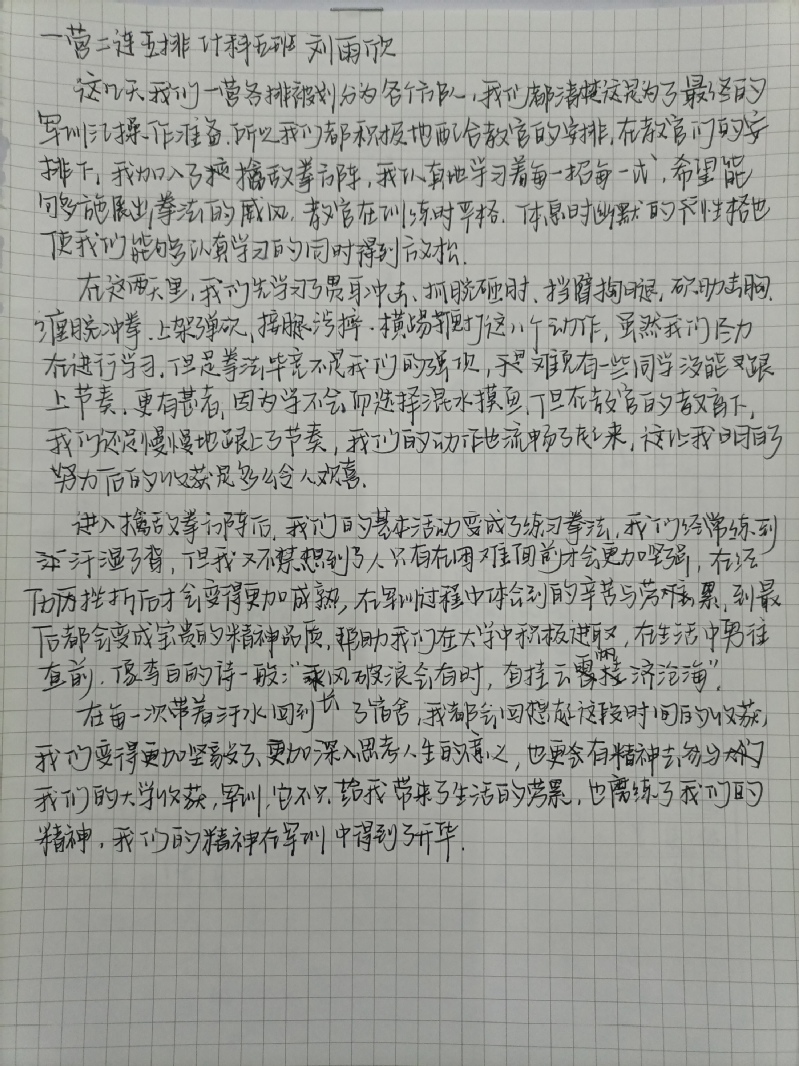 一营二连五排 计科五班 刘雨欣
这几天我们一营各排被划分为各个方队，我们都清楚这是为了最终的
军训汇操作准备.所以我们都积极地配合教官的安排,在教官们的安
排下，我加入了擒敌拳方阵，我认真地学习着每一招每一式，希望能
够施展出拳法的威风.教官在训练时严格.休息时幽默的性格也
使我们能够认真学习的同时得到放松.
在这两天里，我们先学习了贯耳冲击、抓腕砸肘、挡臂掏腿,砍肋击胸.
缠腕冲拳.上架弹砍,接腿涮摔.横踢鞭打这八个动作，虽然我们尽力
在进行学习.但是拳法毕竟不是我们的强项，于是难免有一些同学没能跟
上节奏.更有甚者,因为学不会而选择混水摸鱼.但在教官的教育下,
我们还是慢慢地跟上了节奏，我们的动作也流畅了起来，这让我明白了
努力后的收获是多么令人欢喜.
进入擒敌拳方阵后,我们的基本活动变成了练习拳法,我们经常练到
汗湿了背，但我又不禁想到了人只有在困难面前才会更加坚强，在经
历挫折后才会变得更加成熟,在军训过程中体会到的辛苦与劳累,到最
后都会变成宝贵的精神品质,帮助我们在大学中积极进取，在生活中勇往
直前.像李白的诗一般:"乘风破浪会有时，直挂云帆济沧海".
在每一次带着汗水回到了宿舍,我都会回想起这段时间的收获,
我们变得更加坚毅了、更加深入思考人生的意义，也更会有精神去
我们的大学收获,军训,它不只给我带来了生活的劳累，也磨练了我们的
精神，我们的精神在军训中得到了升华.